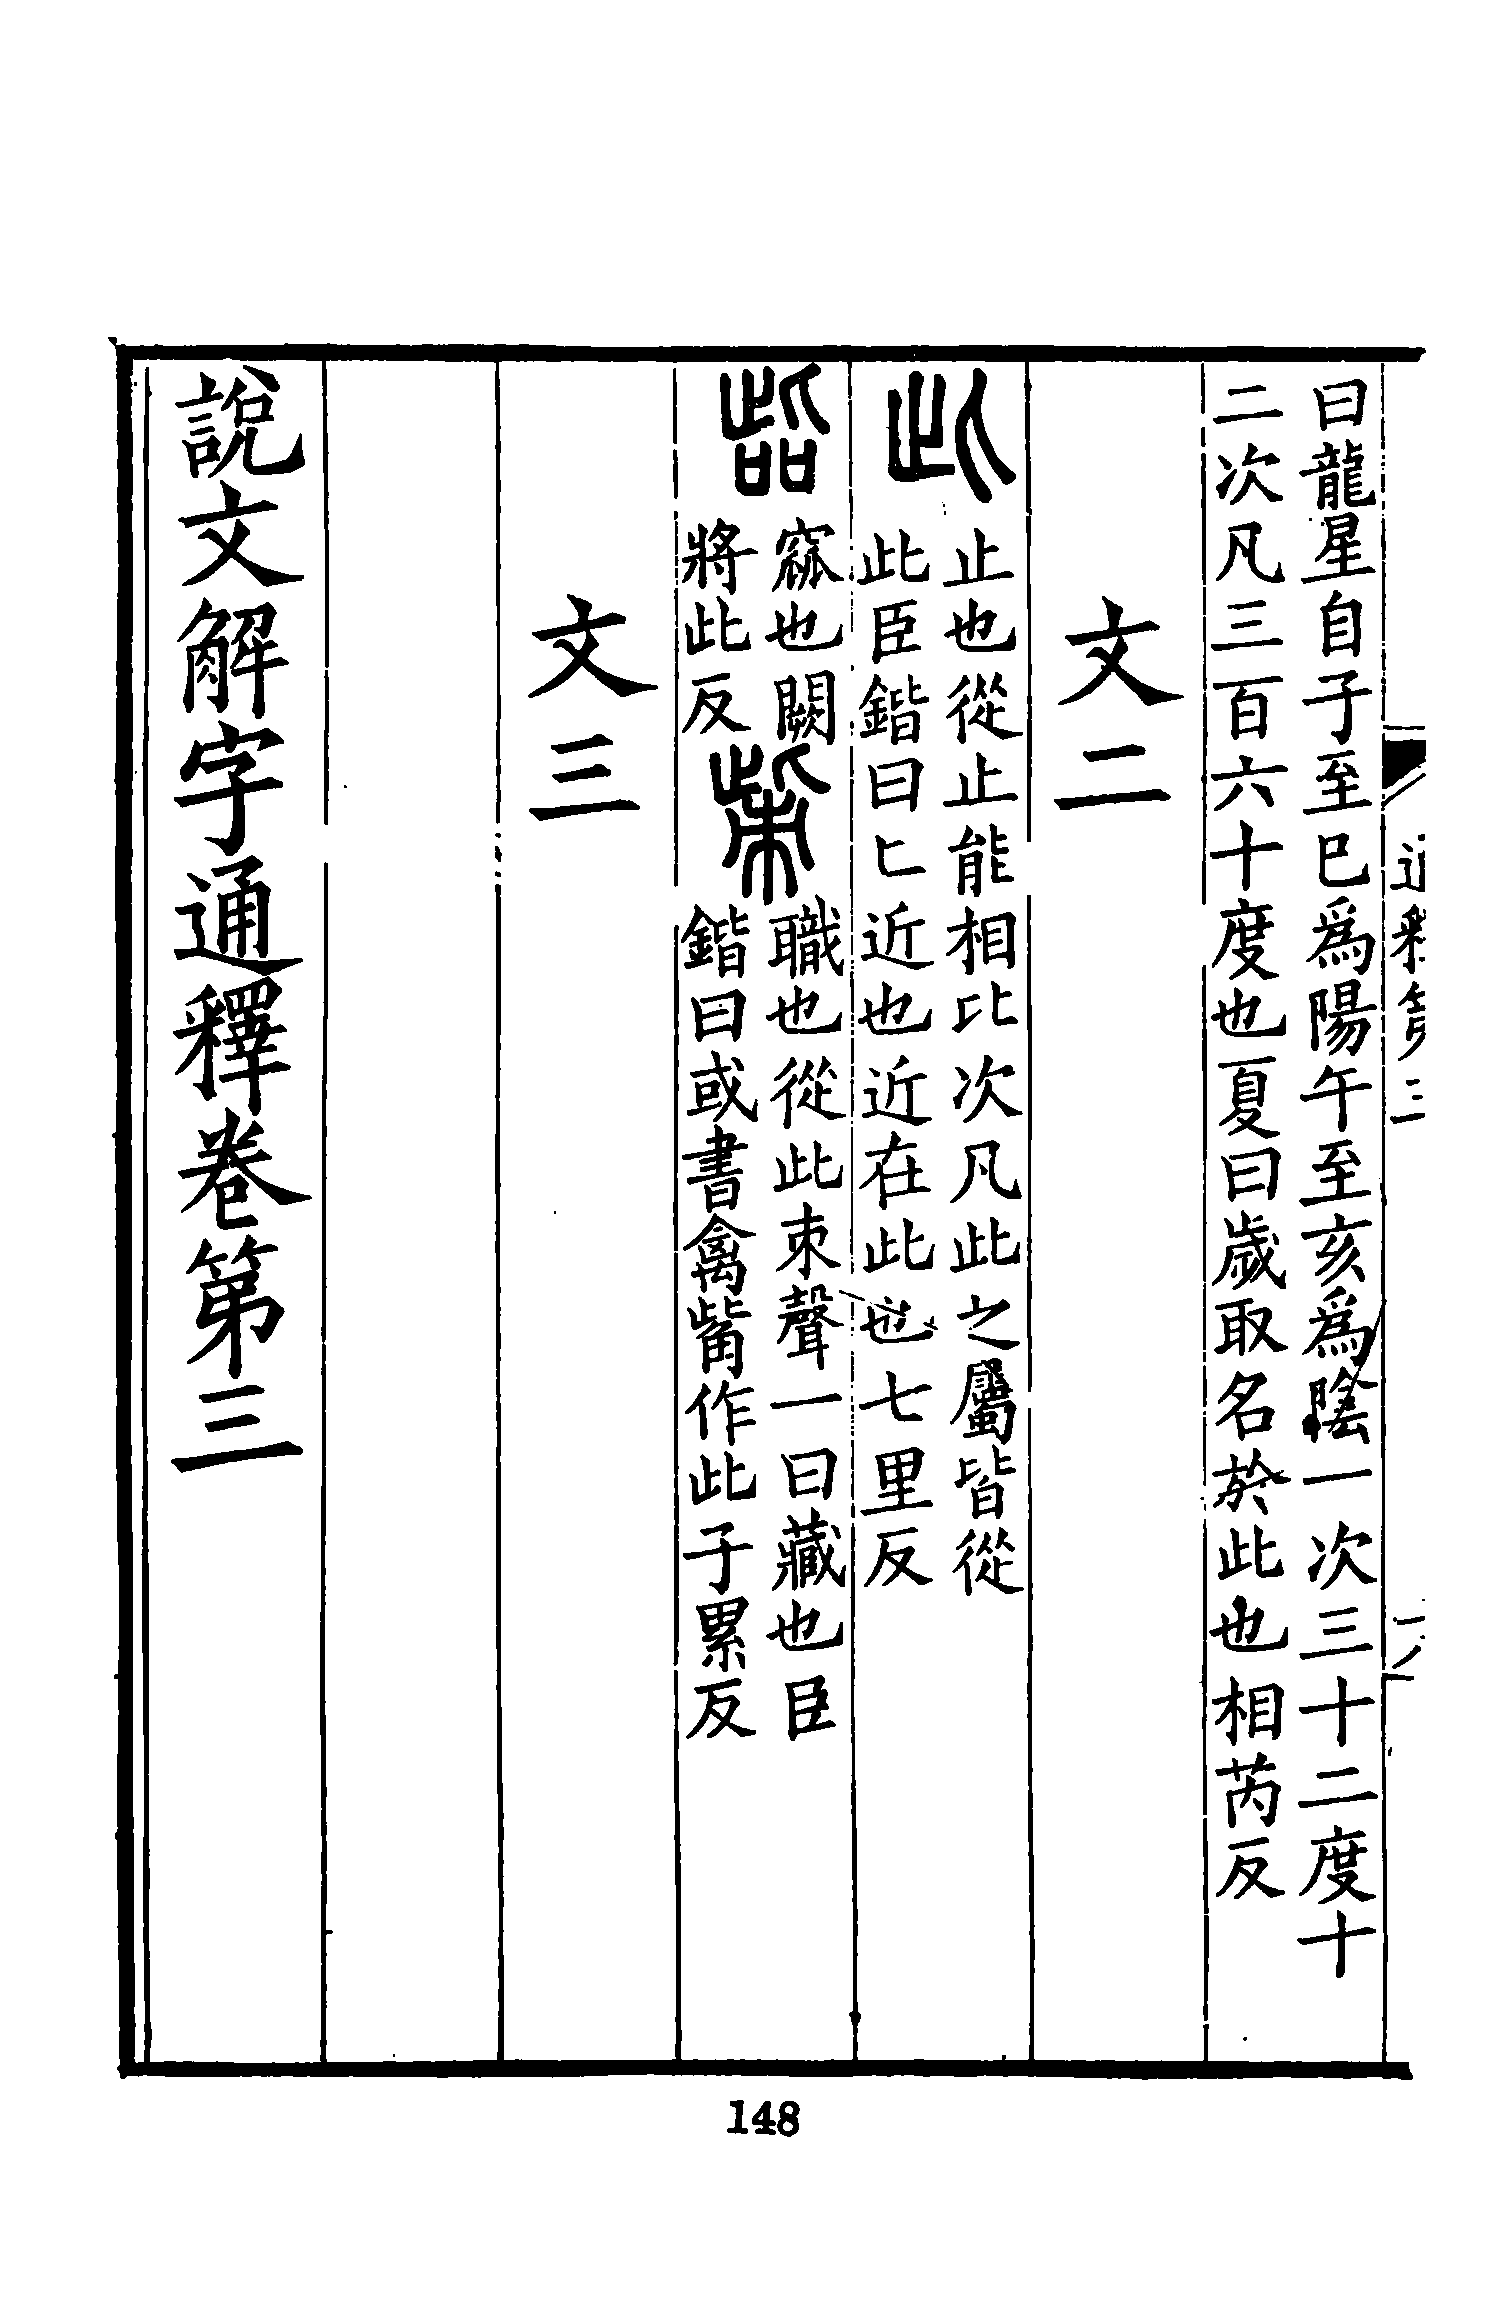 曰龍星自子至巳為陽午至亥為陰一次三十二度十
二次凡三百六十度也夏曰歲取名於此也相芮反
文二
此
止也從止能相比次凡此之屬皆從
此臣鍇曰匕近也近在此也七里反
㗪
窳也闕
將此反
㧘
職也從此朿聲一曰藏也臣
鍇曰或書禽觜作此子累反
文三
說文解字通釋卷第三
148